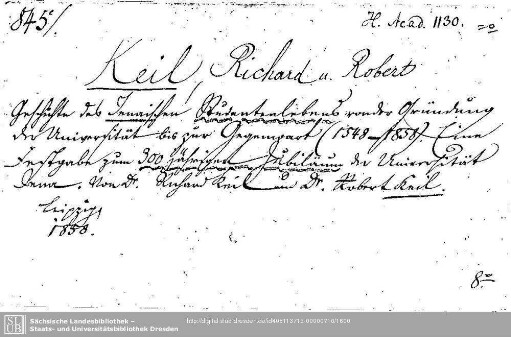 845/
H. Acad. 1130.
Keil, Richard u. Robert
Geschichte des Jenaischen Studentenlebens von der Gründung
der Universität bis zur Gegenwart (1548-1858) Eine
Festgabe zum 300 jährigen Jubiläum der Universität
Jena. Von Dr. Richard Keil und Dr. Robert Keil.
Leipzig
1858.
8º
SLUB
Sächsische Landesbibliothek –
Staats- und Universitätsbibliothek Dresden